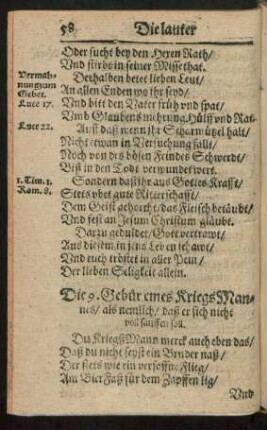 58 Die lauter
Oder sucht bey den Hexen Rath/
Und stirbs in seiner Missethat.
Verman-
nung zum
Gebet.
Derhalben betet lieben Leut/
An allen Enden wo ihr seyd/
Luce 17.
Und bitt den Vater früh und spat/
Umb Glaubens mehrung, Hülff und Rat
Luce 22.
Auff daß wenn ihr Scharmützel halt/
Nicht etwan in Versuchung fallt/
Noch von des bösen Feindes Schwerdt/
Biß in den Todt verwundet werd.
1. Tim. 1.
Rom. 8.
Sondern daß ihr aus Gottes Krafft/
Stets übet gute Ritterschafft/
Dem Geist gehorcht/ das Fleisch betäubt/
Und fest an Jesum Christum gläubt.
Darzu geduldet/ Gott vertrawt/
Aus diesem in jens Leben schawt/
Und euch tröstet in aller Pein/
Der lieben Seligkeit allein.
Die 9. Gebür eines Kriegs Man-
nes/ als nemlich/ daß er sich nicht
voll sauffen soll.
Du Kriegs Mann merck auch eben das/
Daß du nicht seyst ein Bruder naß/
Der stets wie ein versoffne Flieg/
Am Bier Faß für dem Zapffen lig/
Und